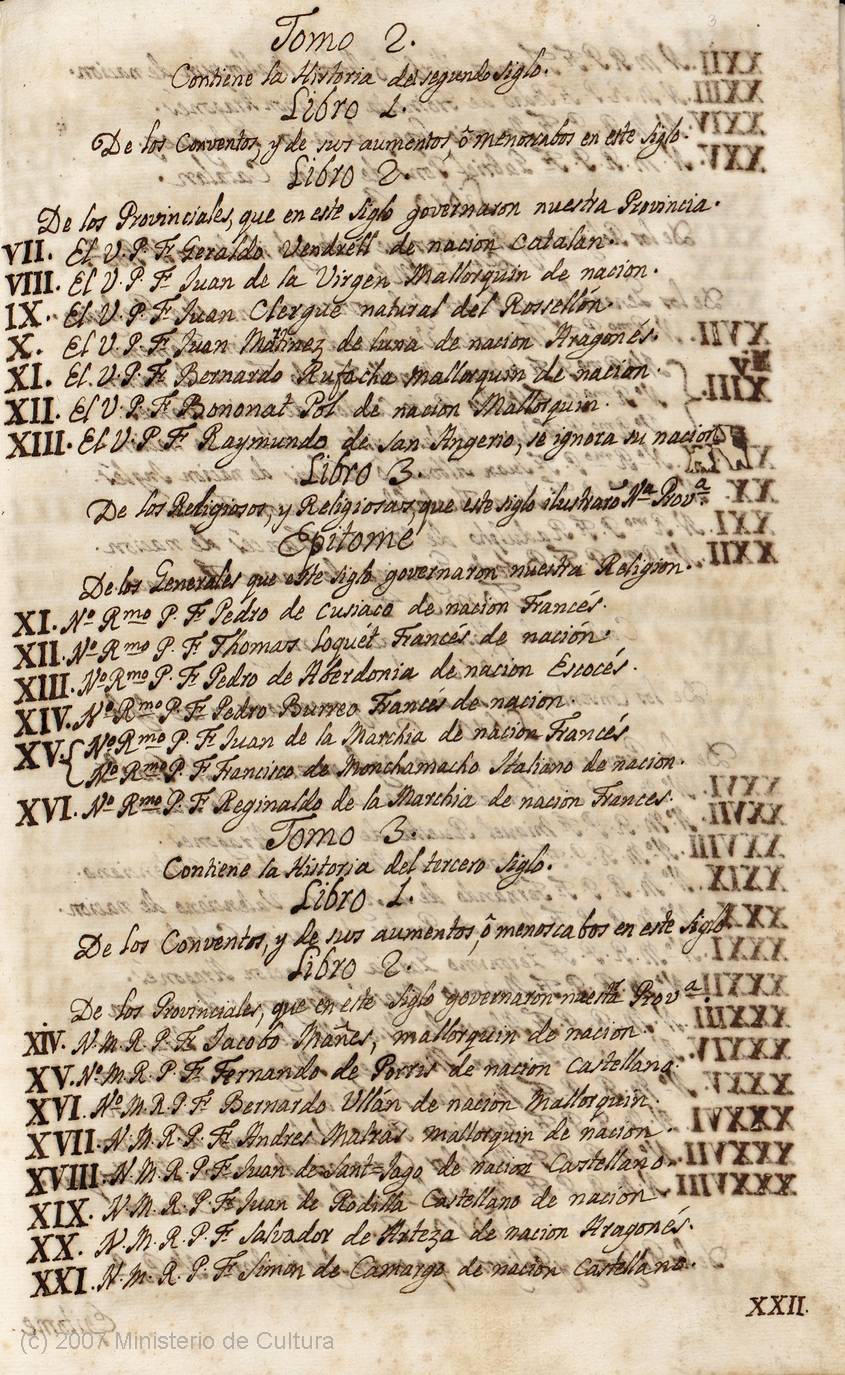 Tomo 2.
Contiene la Historia del segundo siglo.
Libro 1.
De los Conventos, y de sus aumentos, ô menoscabos en este siglo.
Libro 2.
De los Provinciales, que en este siglo governaron nuestra Provincia.
VII. El V. P. Fr. Geraldo Vendrell de nacion Catalan.
VIII. El V. P. Fr. Juan de la Virgen Mallorquin de nacion.
IX. El V. P. Fr. Juan Clergue natural del Rossellón.
X. El V. P. Fr. Juan Matinez de Luna de nacion Aragonés.
XI. El V. P. Fr. Bernardo Rufacha Mallorquin de nacion.
XII. El V. P. Fr. Bononat Pol de nacion Mallorquin.
XIII. El V. P. Fr. Raymundo de San Angerio, se ignora su nacion.
Libro 3.
De los Religiosos, y Religiosas, que este siglo ilustrarõ Nª Provª.
Epitome
De los Generales que este siglo governaron nuestra Religion.
XI. Nº Rmo P. Fr. Pedro de Cusiaco de nacion Francés.
XII. Nº Rmo P. Fr. Thomas Loquét Francés de nación.
XIII. Nº Rmo P. Fr. Pedro de Aberdonia de nacion Escocés.
XIV. Nº Rmo P. Fr. Pedro Burreo Francés de nacion.
XV. { Nº Rmo P. Fr. Juan de la Marchia de nacion Francés
Nº Rmo P. Fr. Francisco de Monchamacho Italiano de nacion.
XVI. Nº Rmo P. Fr. Reginaldo de la Marchia de nacion Frances.
Tomo 3.
Contiene la Historia del tercero siglo.
Libro 1.
De los Conventos, y de sus aumentos, ô menoscabos en este siglo
Libro 2.
De los Provinciales, que en este siglo governaron nuestra Provª.
XIV. N. M. R. P. Fr. Jacobo Mañes, mallorquin de nacion.
XV. Nº M. R. P. Fr. Fernando de Porris de nacion Castellana.
XVI. Nº M. R. P. Fr. Bernardo Ullán de nacion Mallorquin.
XVII. N. M. R. P. Fr. Andres Matrás mallorquin de nacion.
XVIII. N. M. R. P. Fr. Juan de Sant=Jago de nacion Castellano.
XIX. N. M. R. P. Fr. Juan de Rodilla Castellano de nacion.
XX. N. M. R. P. Fr. Salvador de Arteza de nacion Aragonés.
XXI. N. M. R. P. Fr. Simon de Camargo de nacion Castellano.
XXII.
(c) 2007 Ministerio de Cultura